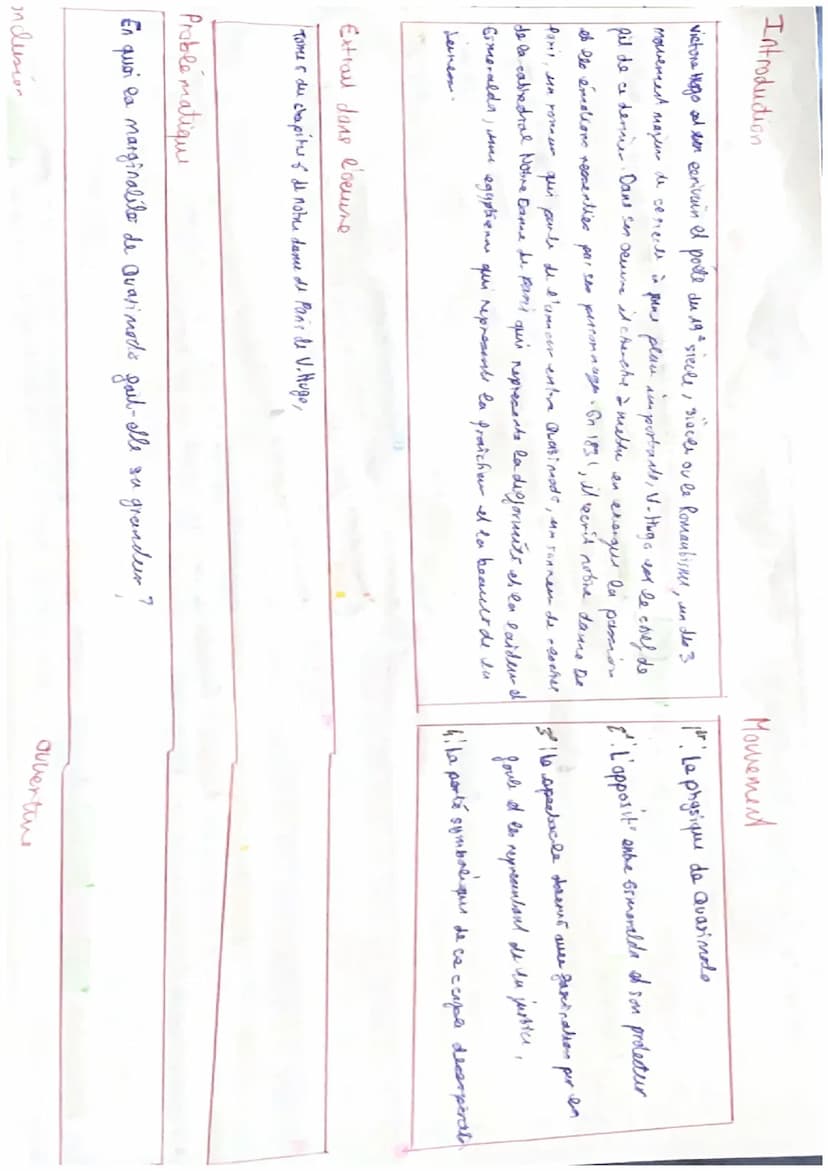 Introduction
Victore Hugo est un ecrivain et poète du 19e siecle, siècle ou le Romantisme, un des 3
mouvement majeur de ce siecle à pris place importante, V. Hugo est le chef de
fil de ce dernier. Dans son oeuvre il cherche à mettre en exergue la passion
et les émotions ressenties par ses personnages. En 1831, il ecrit notre dame De
Paris, un roman qui parle de l'amour entre Quasimodo, un sonneur de cloches
de la cathedral Notre Dame de Paris qui represente la deformité et la laideur et
Esmeralda, une egyptienne qui represente la fraicheur et la beauté de la
Mouvement
1er: Le physique de Quasimodo
2e: L'opposit° entre Esmeralda et son protecteur
3e: Le spectacle observé avec fascination par la
foule et les representant de la justice,
4: La porté symbolique de ce couple desesperalo
Extrait dans l'oeuvre
du chapitre 6 de notre dame de Paris de V. Hugo,
Problématique
En quoi la marginalité de Quasimodo fait-elle sa grandeur ?
onclusion
Ouverture